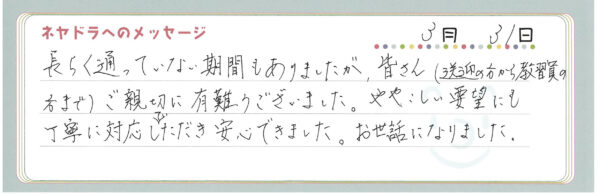 ネヤドラへのメッセージ 3月 31日
長らく通っていない期間もありましたが、皆さん(送迎の方から教習員の
方まで)ご親切に有難うございました。ややこしい要望にも
丁寧に対応いただき安心できました。お世話になりました.